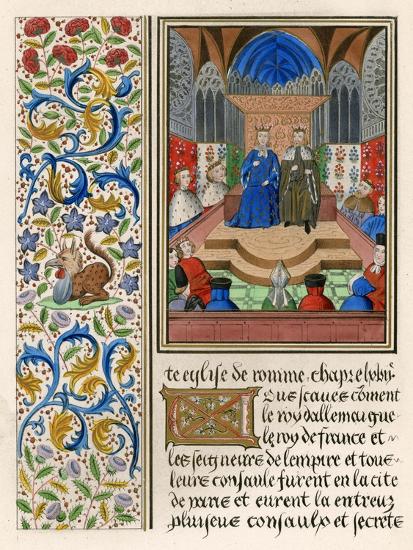 te eglise de romme. chap.e lxviii
Vous scaves cõment
le roy dallemaugue
le roy de france et
les seigneurs de lempire et tous
leurs consaulx furent en la cite
de paris et eurent la entreux
pluseurs consaulx et secrets